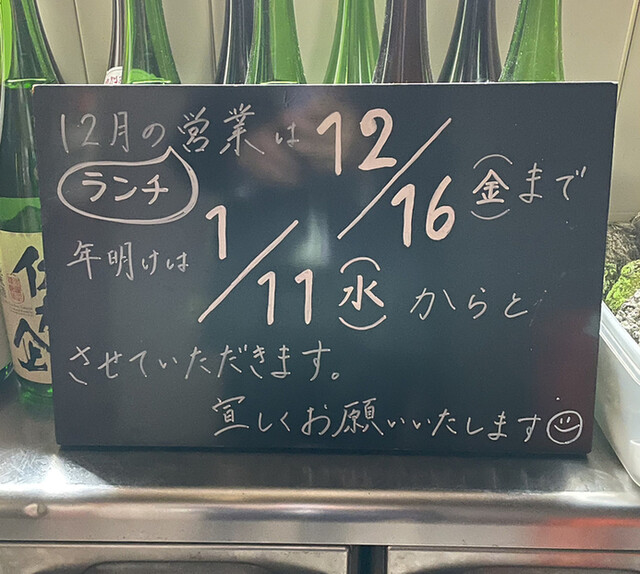 12月の営業は 12/16 (金)まで
ランチ
年明けは 1/11 (水) からと
させていただきます。
宜しくお願いいたします